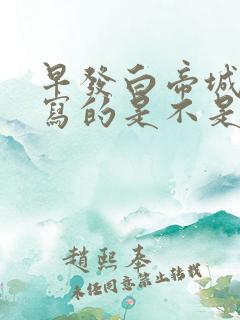 早發白帝城
寫的是不是
趙熙奉
未經同意禁止轉載